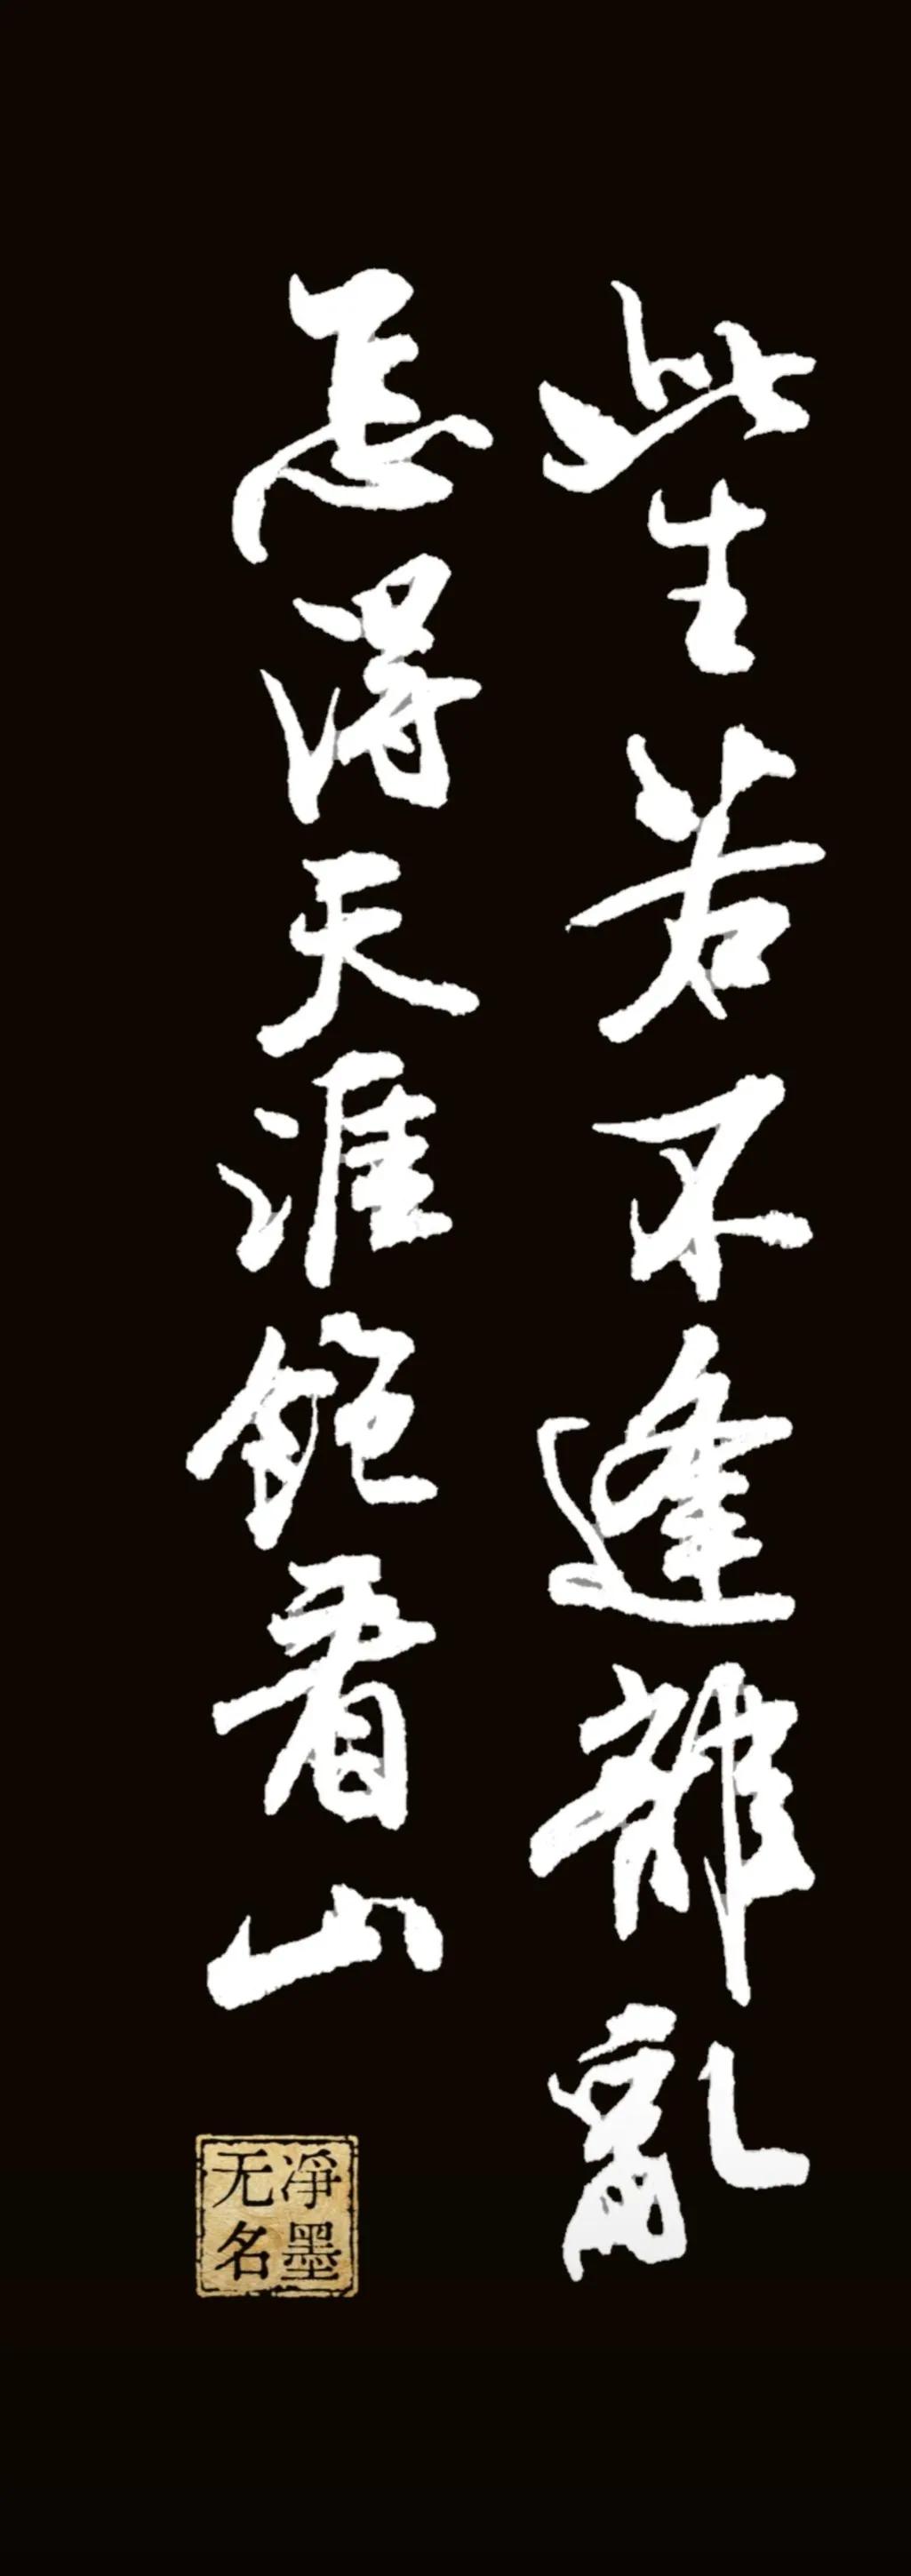 此生若不逢離亂
怎得天涯飽看山
淨墨
无名